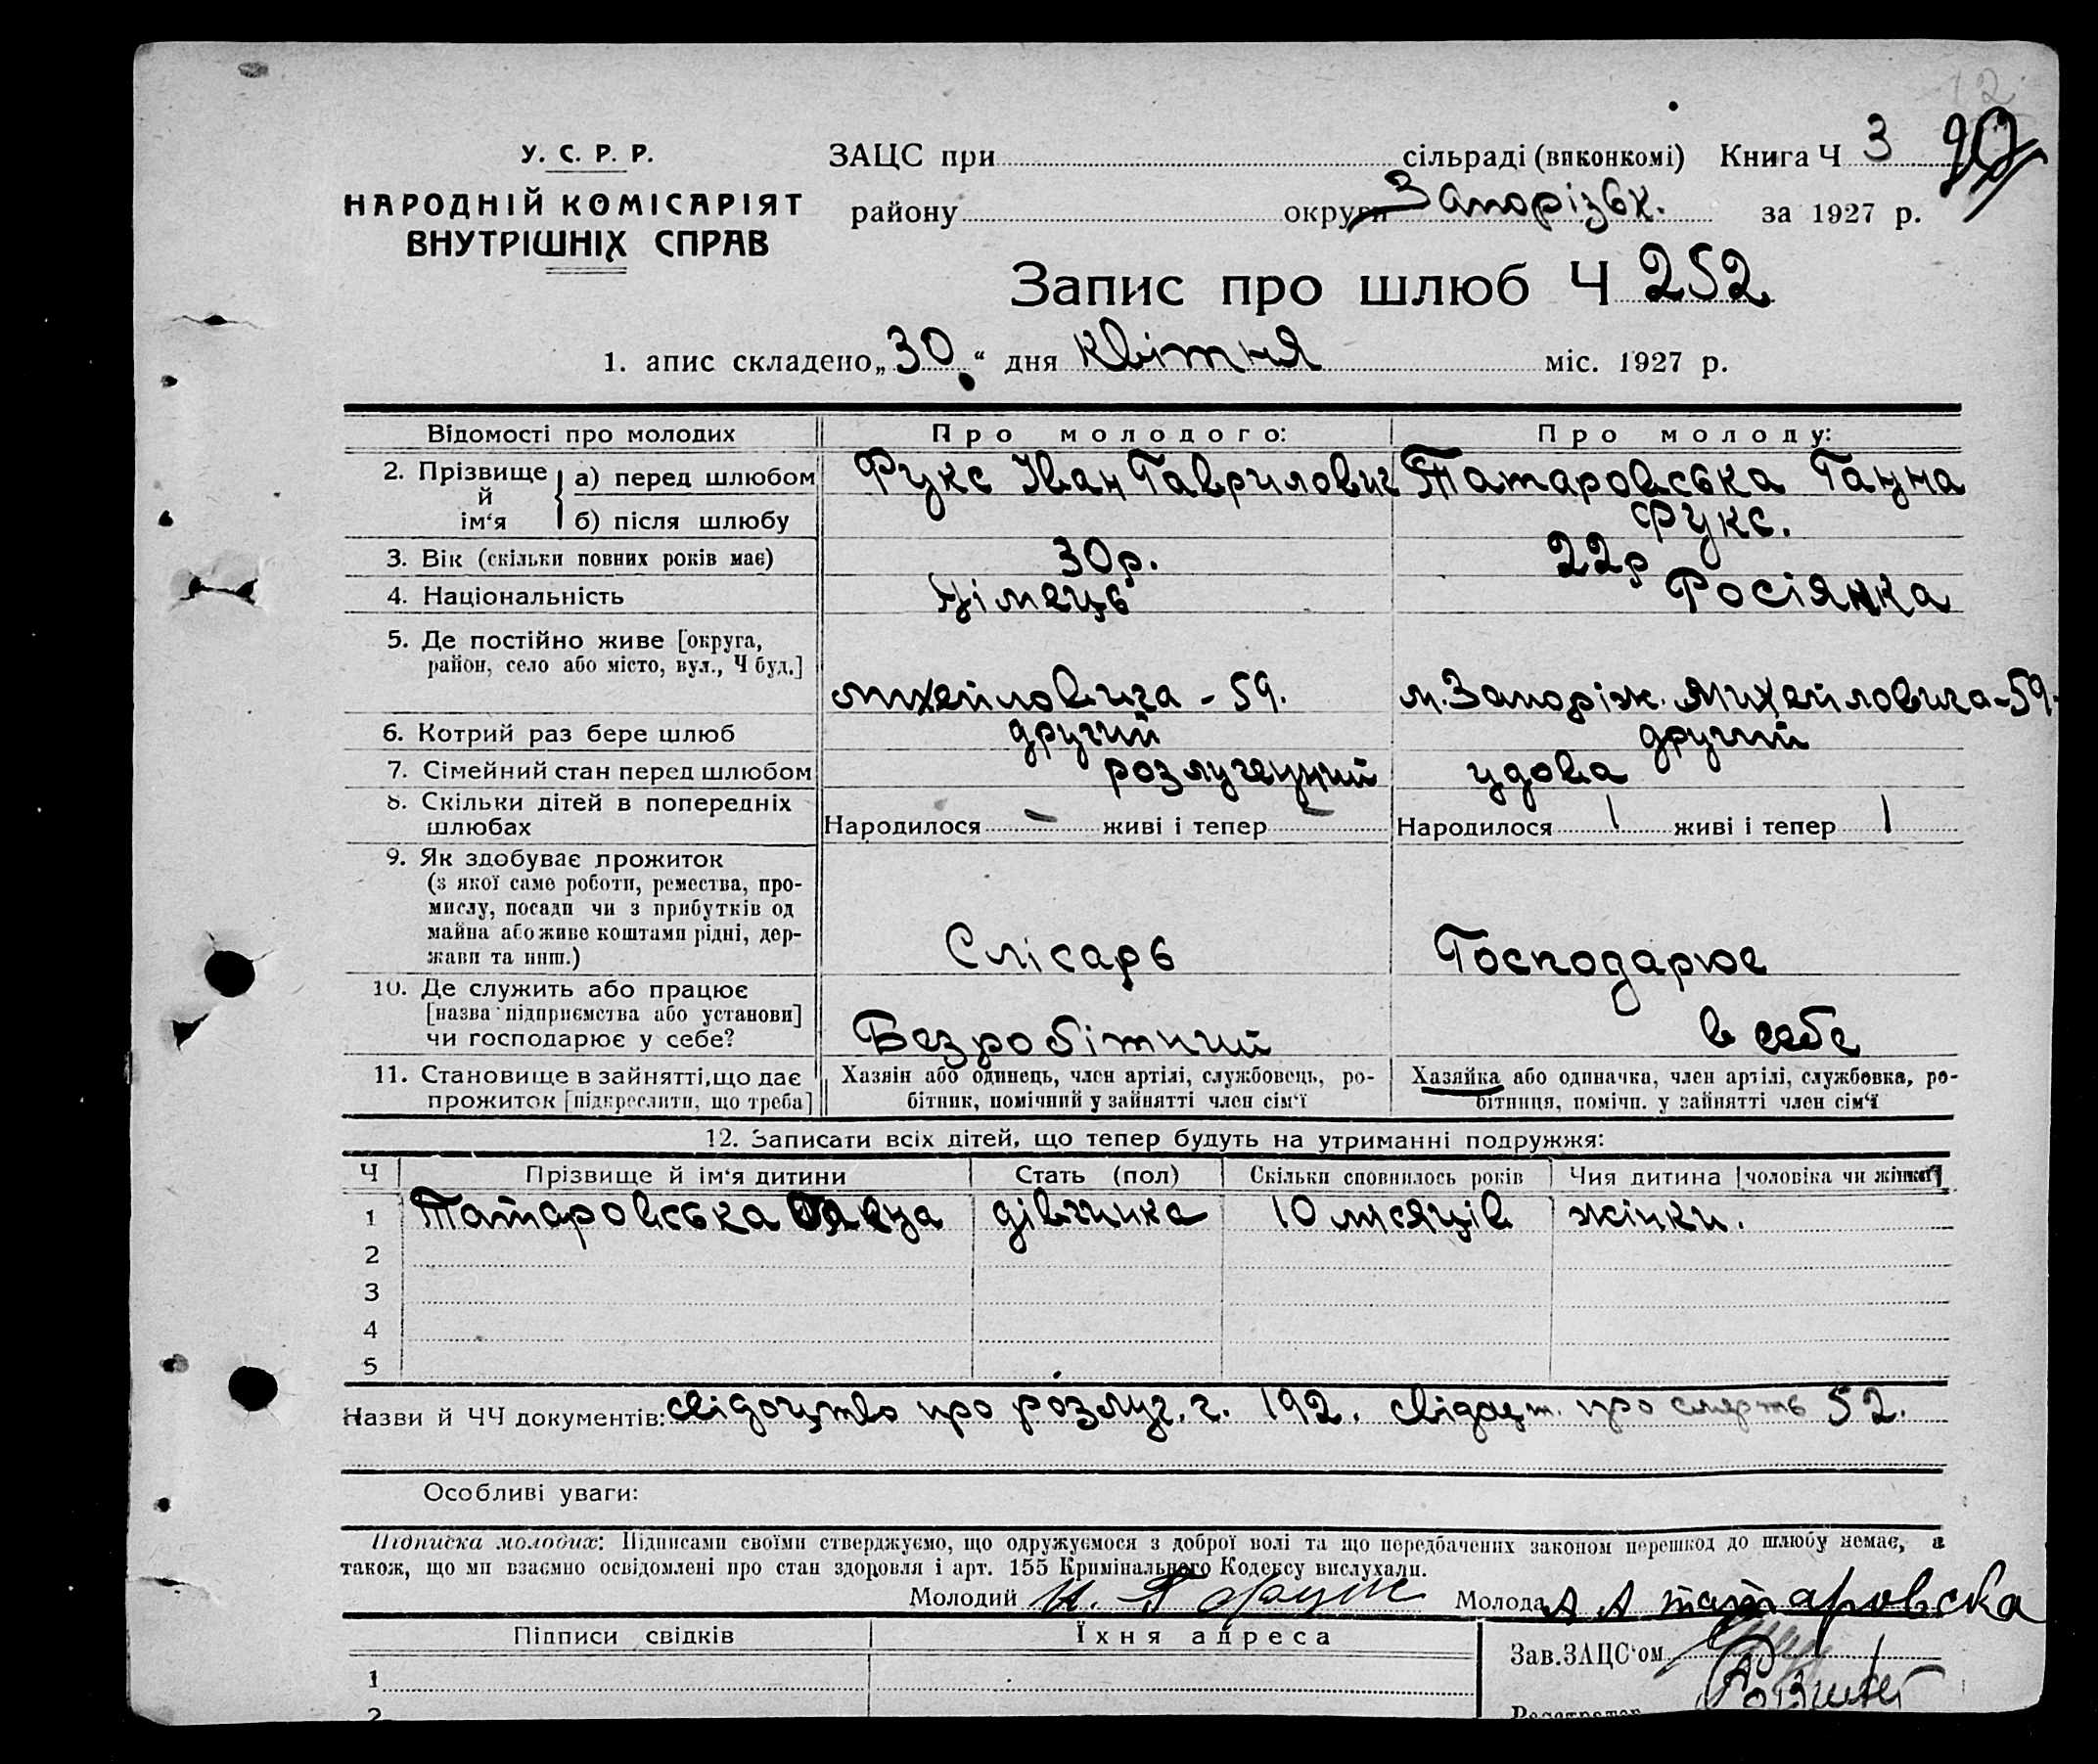 12
У. С. Р. Р.
НАРОДНІЙ КОМІСАРІЯТ
ВНУТРІШНІХ СПРАВ
ЗАЦС при сільраді (виконкомі) Книга Ч 3 90
району округи Запорізьк. за 1927 р.
Запис про шлюб Ч 252
1. апис складено „30“ дня Квітня міс. 1927 р.
Відомості про молодих Про молодого: Про молоду:
2. Прізвище й ім'я а) перед шлюбом Фукс Іван Гаврилович Татаровська Ганна
б) після шлюбу Фукс.
3. Вік (скільки повних років має) 30р. 22р
4. Національність Німець Росіянка
5. Де постійно живе [округа,
район, село або місто, вул., Ч буд.] Михейловича - 59. м. Запоріж. Михейловича-59.
6. Котрий раз бере шлюб другий другий
7. Сімейний стан перед шлюбом розлучений удова
8. Скільки дітей в попередніх
шлюбах Народилося - живі і тепер - Народилося 1 живі і тепер 1
9. Як здобуває прожиток
(з якої саме роботи, ремества, про-
мислу, посади чи з прибутків од
майна або живе коштами рідні, дер-
жави та инш.) Слісарь Господарює
10. Де служить або працює
[назва підприємства або установи]
чи господарює у себе? Безробітний в себе
11. Становище в зайнятті, що дає
прожиток [підкреслити, що треба]
Хазяін або одинець, член артілі, службовець, ро-
бітник, помічний у зайнятті член сім'ї
Хазяйка або одиначка, член артілі, службовка, ро-
бітниця, помічн. у зайнятті член сім'ї
12. Записати всіх дітей, що тепер будуть на утриманні подружжя:
Ч Прізвище й ім'я дитини Стать (пол) Скільки сповнилось років Чия дитина [чоловіка чи жінки]
1 Татаровська дівчинка 10 місяців жінки.
2
3
4
5
Назви й ЧЧ документів: свідоцтво про розлуч. г. 192. свідоцт. про смерть 52.
Особливі уваги:
Підписка молодих: Підписами своїми стверджуємо, що одружуємося з доброї волі та що передбачених законом перешкод до шлюбу немає, а
також, що ми взаємно освідомлені про стан здоровля і арт. 155 Кримінального Кодексу вислухали.
Молодий И. Г. Фукс Молода А А татаровска
Підписи свідків Їхня адреса Зав. ЗАЦС'ом
1
2 Реєстратор